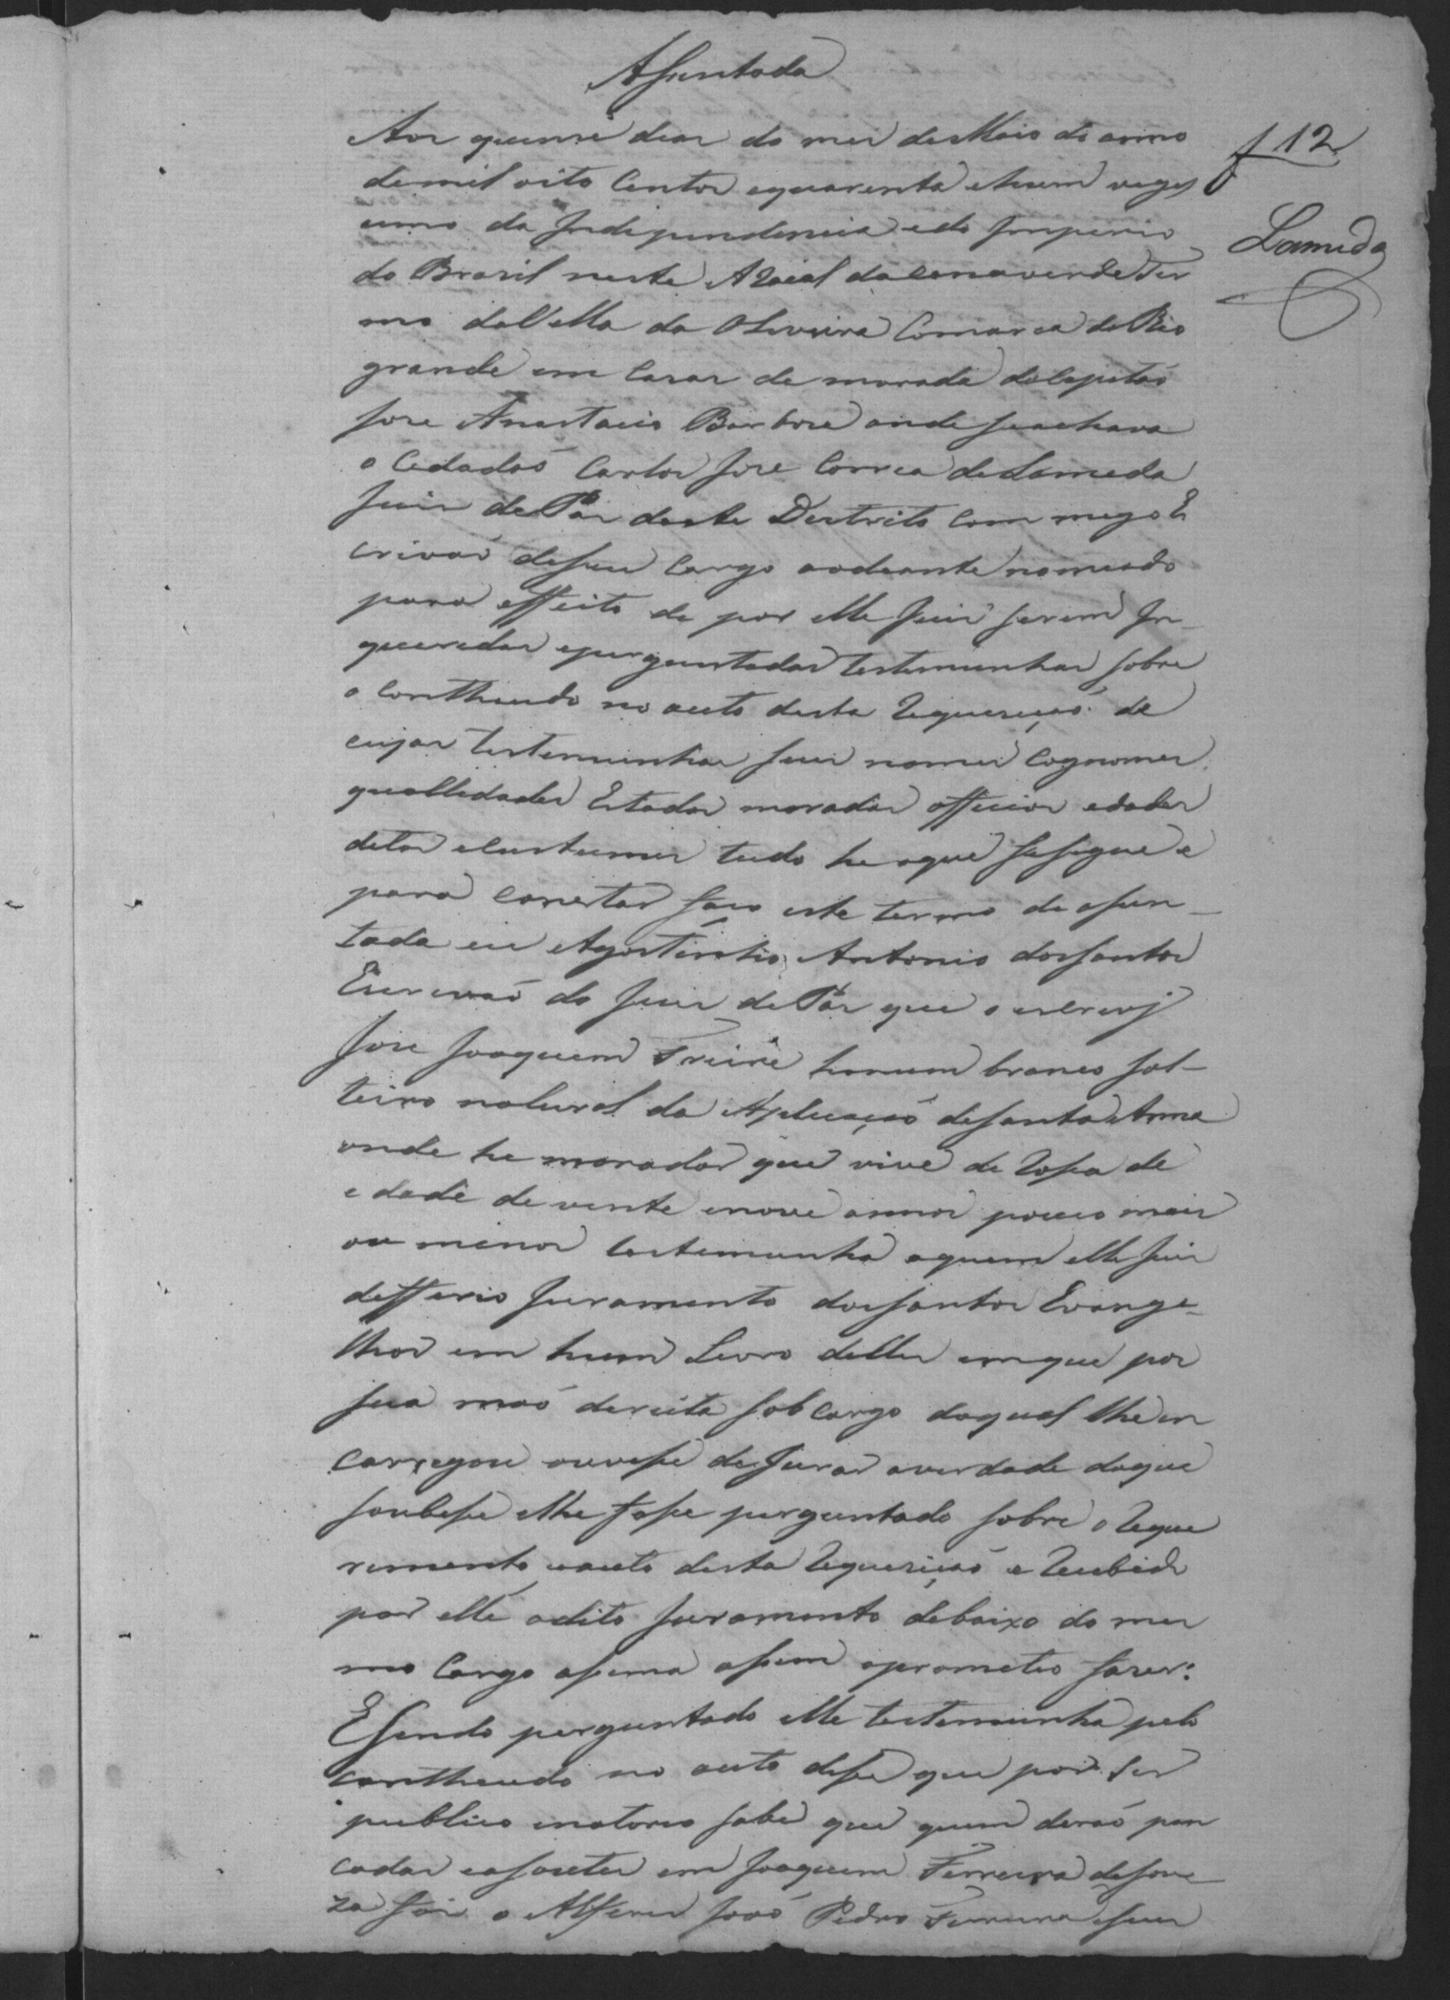 Assentada
Aos quinze dias do mes de Maio do anno
de mil oito Centos e quarenta e hum veges
imo da Independencia e do Imperio
do Brazil neste Arraial da Cana verde Ter
mo da Villa da Oliveira Comarca do Rio
grande em Cazas de morada do Capitaõ
Joze Anastacio Barboza onde se achava
o Cidadaõ Carlos Joze Correa de Lameda
Juis de Pas deste Destrito Com migo Es
crivaõ de seu Cargo aodeante nomeado
para effeito de por elle Juis serem In-
queredas e perguntadas testemunhas sobre
o Contheudo no auto desta Requeriçaõ de
cujas testemunhas seus nomes Cognomes
quallidades Estados moradas officios edades
ditos e Custumes tudo he o que se segue e
para Constar faço este termo de assen-
tada eu Agostinho Antonio dos Santos
Escrivaõ do Juis de Pas que o escrevj
Joze Joaquim Freire homem branco sol-
teiro natural da Aplicaçaõ de Santa Anna
onde he morador que vive de Rossa de
edade de vinte e nove annos pouco mais
ou menos testemunha a quem elle Juis
defferio Juramento dos Santos Evange-
lhos em hum Livro delles em que pos
sua maõ dereita sob Cargo do qual lhe en
carregou ouvesse de Jurar a verdade do que
soubesse e lhe fosse perguntado sobre o Reque
rimento e auto desta Requeriçaõ e Recebido
por elle o dito Juramento debaixo do mes
mo Cargo assima assim o prometeo fazer:
E sendo perguntado elle testemunha pelo
Contheudo no auto disse que por ser
publico e notorio sabe que quem deraõ pan
cadas e asoutes em Joaquim Ferreira de Sou
za foi o Alferes Joaõ Pedro Ferreira e seus
f 12
Lameda